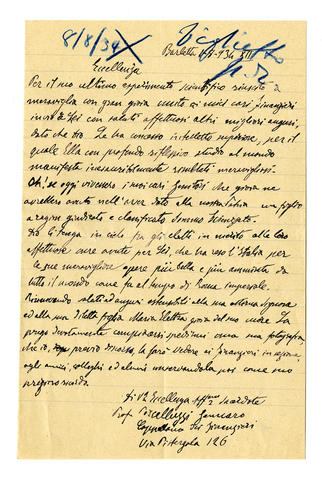 8/8/34
Barletta 934 XII
Eccellenza
Per il suo ultimo esperimento scientifico riuscito a
meraviglia con gran gioia questi ai miei cari finanzieri
saluti affettuosi altri migliori auguri,
dato che Dio Le ha concesso intelletto superiore, per il
quale Ella con profondo riflessivo studio al mondo
manifesta incessantemente resultati meravigliosi.
Oh! se oggi vivessero i suoi cari Genitori che gioia ne
avrebbero avuta nell'aver dato alla nostra Patria un figlio
a ragione giudicato e classificato sommo Scienziato.
Dio li tenga in cielo fra gli eletti in merito alle loro
affettuose cure avute per Lei, che ha reso l'Italia per
le sue meravigliose opere più bella e più ammirata da
tutto il mondo come fu al tempo di Roma imperiale.
Rinnovando saluti ed auguri estensibili alla sua ottima Signora
ed alla sua diletta figlia Maria Elettra gioia del suo cuore La
prego devotamente compiacersi spedirmi una sua fotografia
che io, previo discorso, la farò vedere ai finanzieri in
agli amici, colleghi ed alunni conservandola poi come suo
prezioso ricordo.
di V. Eccellenza Sacerdote
Prof. Gennaro
Cappellano dei finanzieri
Via Pitergola 126